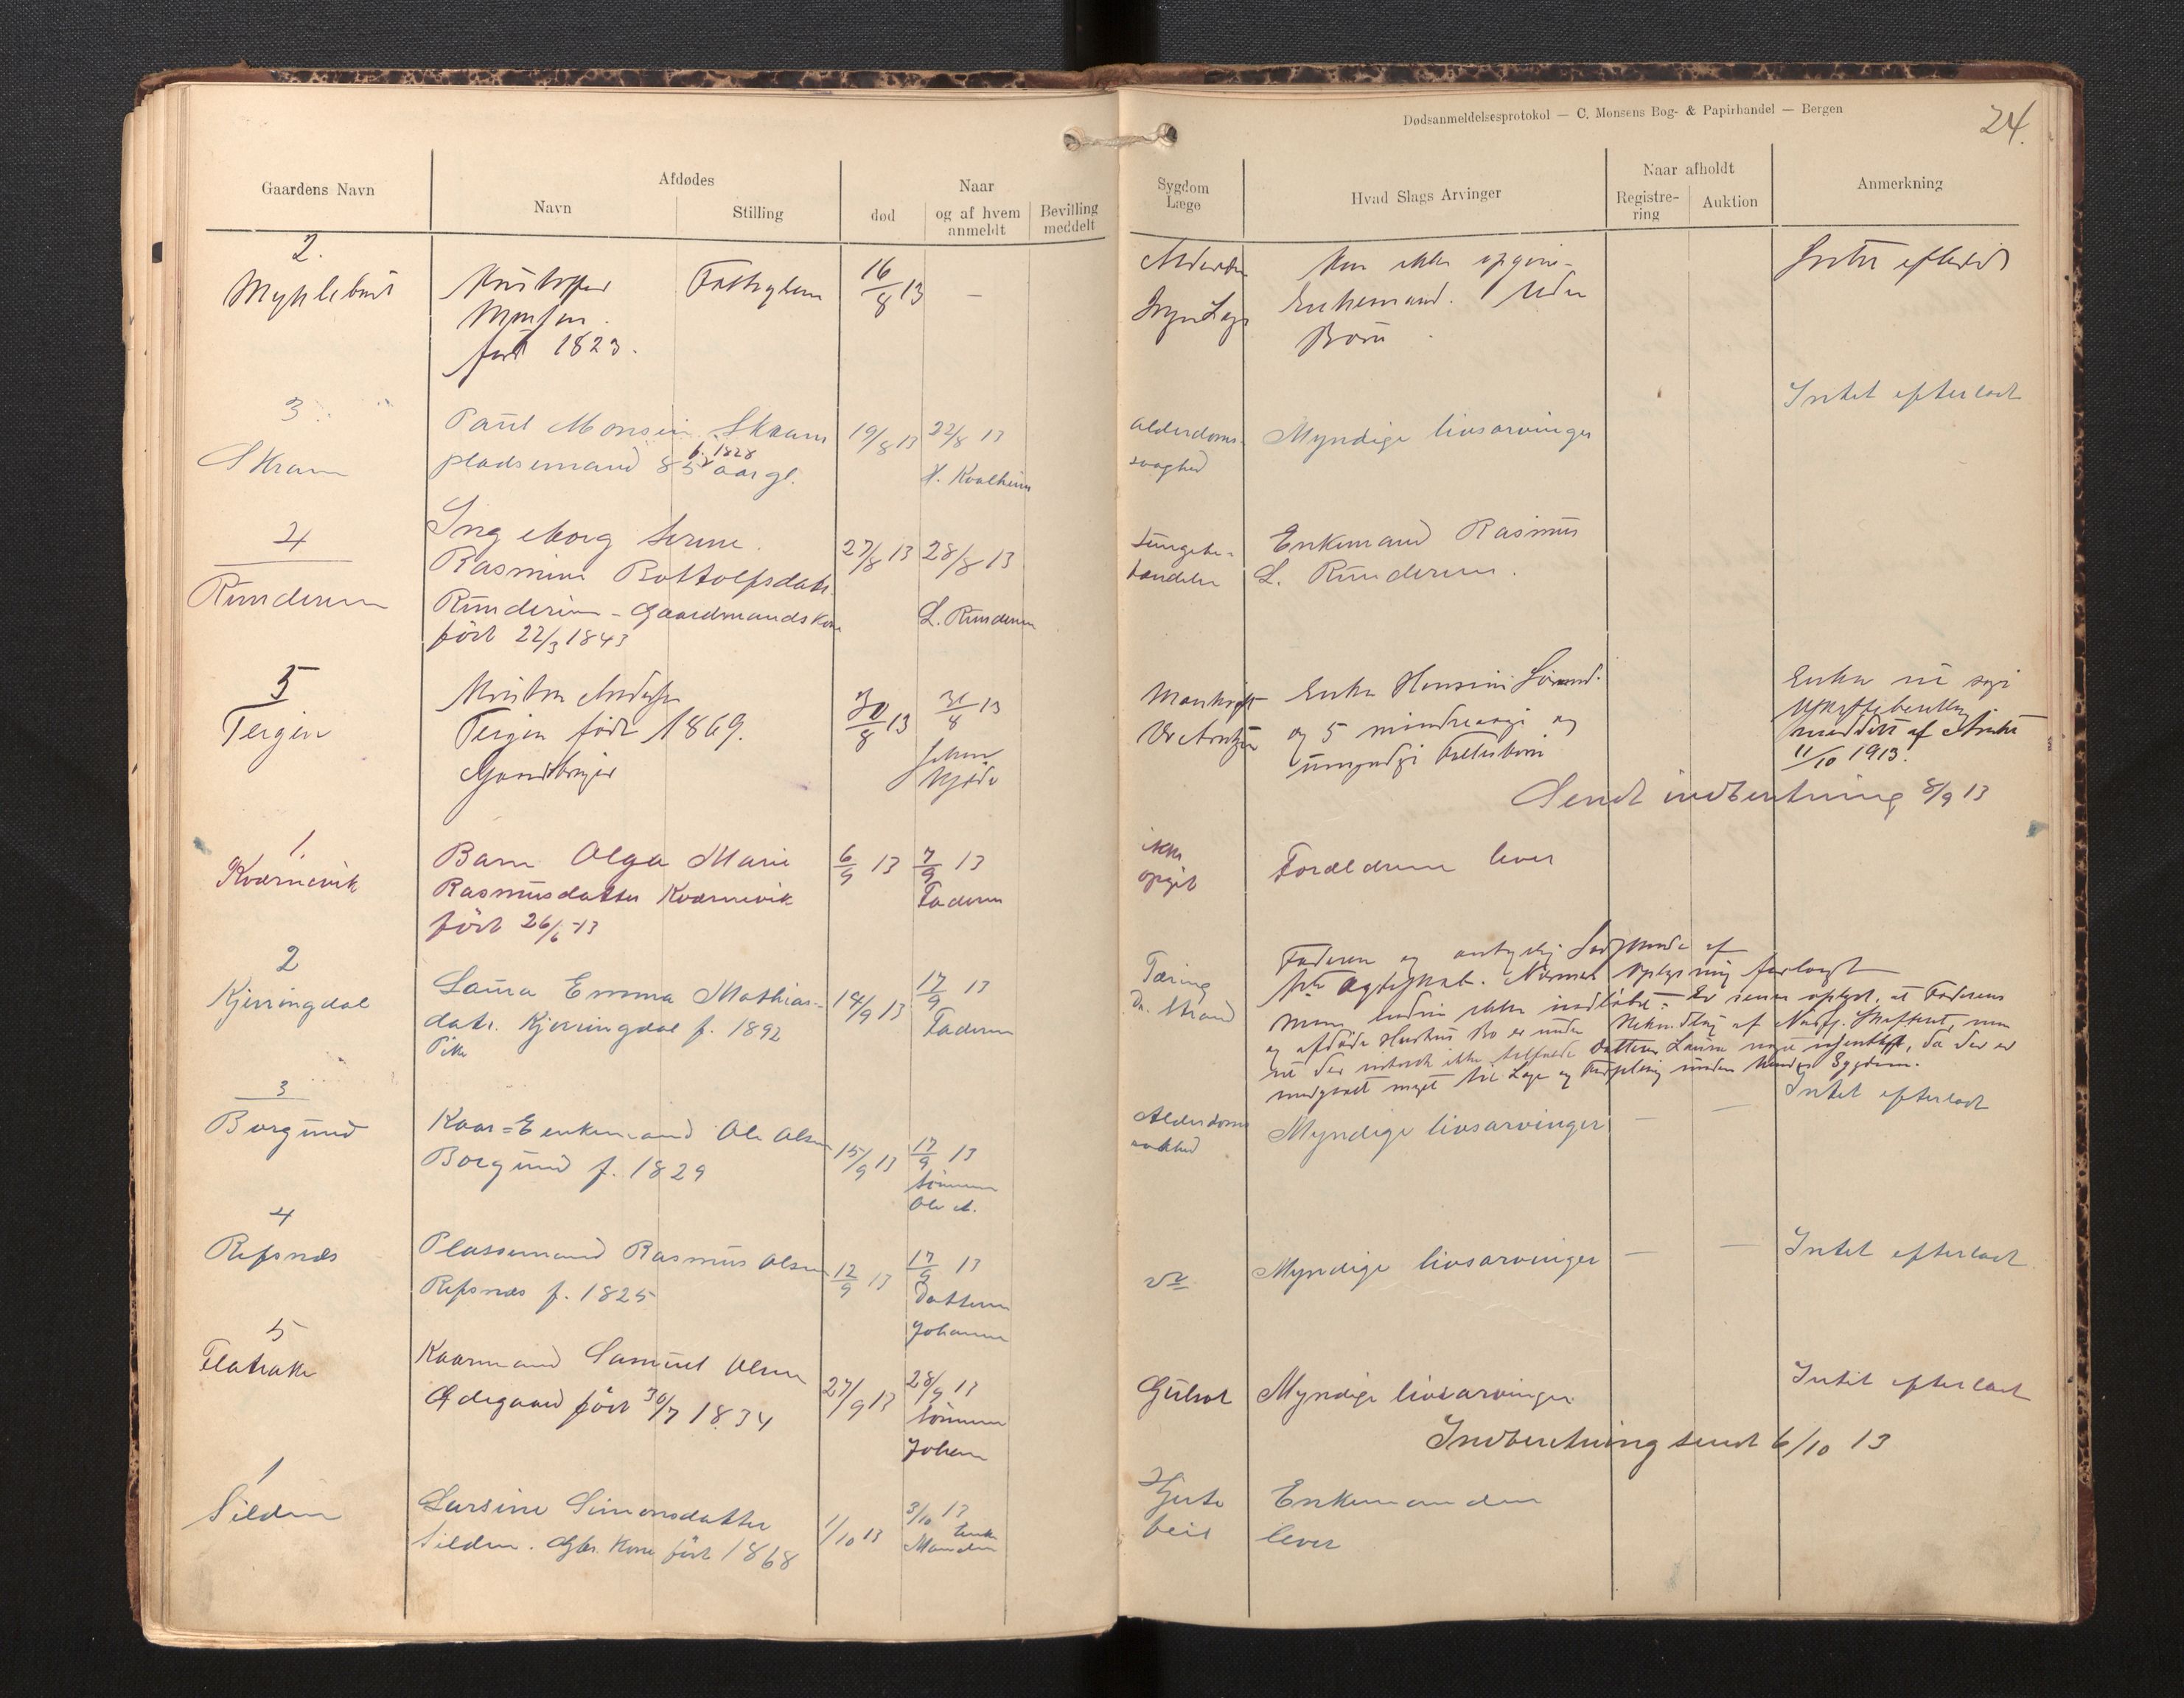 Dødsanmeldelsesprotokol — C. Monsens Bog- & Papirhandel — Bergen
24.
Gaardens Navn
Afdødes
Navn
Stilling
Naar
død
og af hvem
anmeldt
Bevilling
meddelt
Sygdom
Læge
Hvad Slags Arvinger
Naar afholdt
Registre-
ring
Auktion
Anmerkning
2.
Myklebust
Kristoffer
Monsen.
født 1823.
Fattiglem
16/8 13
—
Kan ikke opgive-
Enkemand. Uden
Børn
Intet efterladt
3
Skram
Paul Monsen Skram
f. 1828
pladsemand 85 aar gl.
19/8 13
22/8 13
H. Kvalheim
alderdoms-
svaghed
Myndige livsarvinger
Intet efterladt
4
Runderein
Ingeborg Serine
Rasmine Bottolfsdatr.
Runderein - Gaardmandskone
født 22/3 1843
27/8 13
28/8 13
L. Runderein
Lungebe-
tændelse
Enkemand Rasmus
L. Runderein.
5
Teigen
Teigen født 1869.
Gaardbruger
30/8 13
31/8 13
Enke Hansine
og 5 mindreaarige og
umyndige Fællesbørn
Enken i
meddelt af
11/10 1913.
Sendt indberetning 8/9 13
1.
Kværnevik
Barn Olga Marie
Rasmusdatter Kværnevik
født 26/6 -13
6/9 13
7/9 13
Faderen
ikke
opgit
Forældrene lever
2
Kjerringdal
Laura Emma Mathias-
datr. Kjerringdal f. 1892
Pike
14/9 13
17/9 13
Faderen
Tæring
Dr. Strand
Faderen og
Ægteskab. Nærmere Oplysning forlangt
men endnu ikke indløbet. - Er senere oplyst, at Faderens
og afdøde Hustrus Bo er under Behandling af
ikke tilfalde Datteren Laura noget, da der er
medgaaet meget til Læge og Forpleining under hendes Sygdom.
3
Borgund
Kaar=Enkemand Ole Olsen
Borgund f. 1829
15/9 13
17/9 13
Sønnen
Ole A.
Alderdoms
svakhed
Myndige livsarvinger
—
—
Intet efterladt
4
Refsnæs
Plassemand Rasmus Olsen
Refsnæs f. 1825
12/9 13
17/9 13
Datteren
Johanne
Myndige livsarvinger
—
—
Intet efterladt
5
Flatrake
Kaarmand Samuel Olsen
Ødegaard født 30/7 1834
27/9 13
28/9 13
Sønnen
Johan
Gulsot
Myndige livsarvinger
Intet efterladt
Indberetning sendt 6/10 13
1
Silden
Larsine Simonsdatter
Silden. Gbr. Kone født 1868
1/10 13
3/10 13
Enke
Manden
Hjerte
feil
Enkemanden
lever